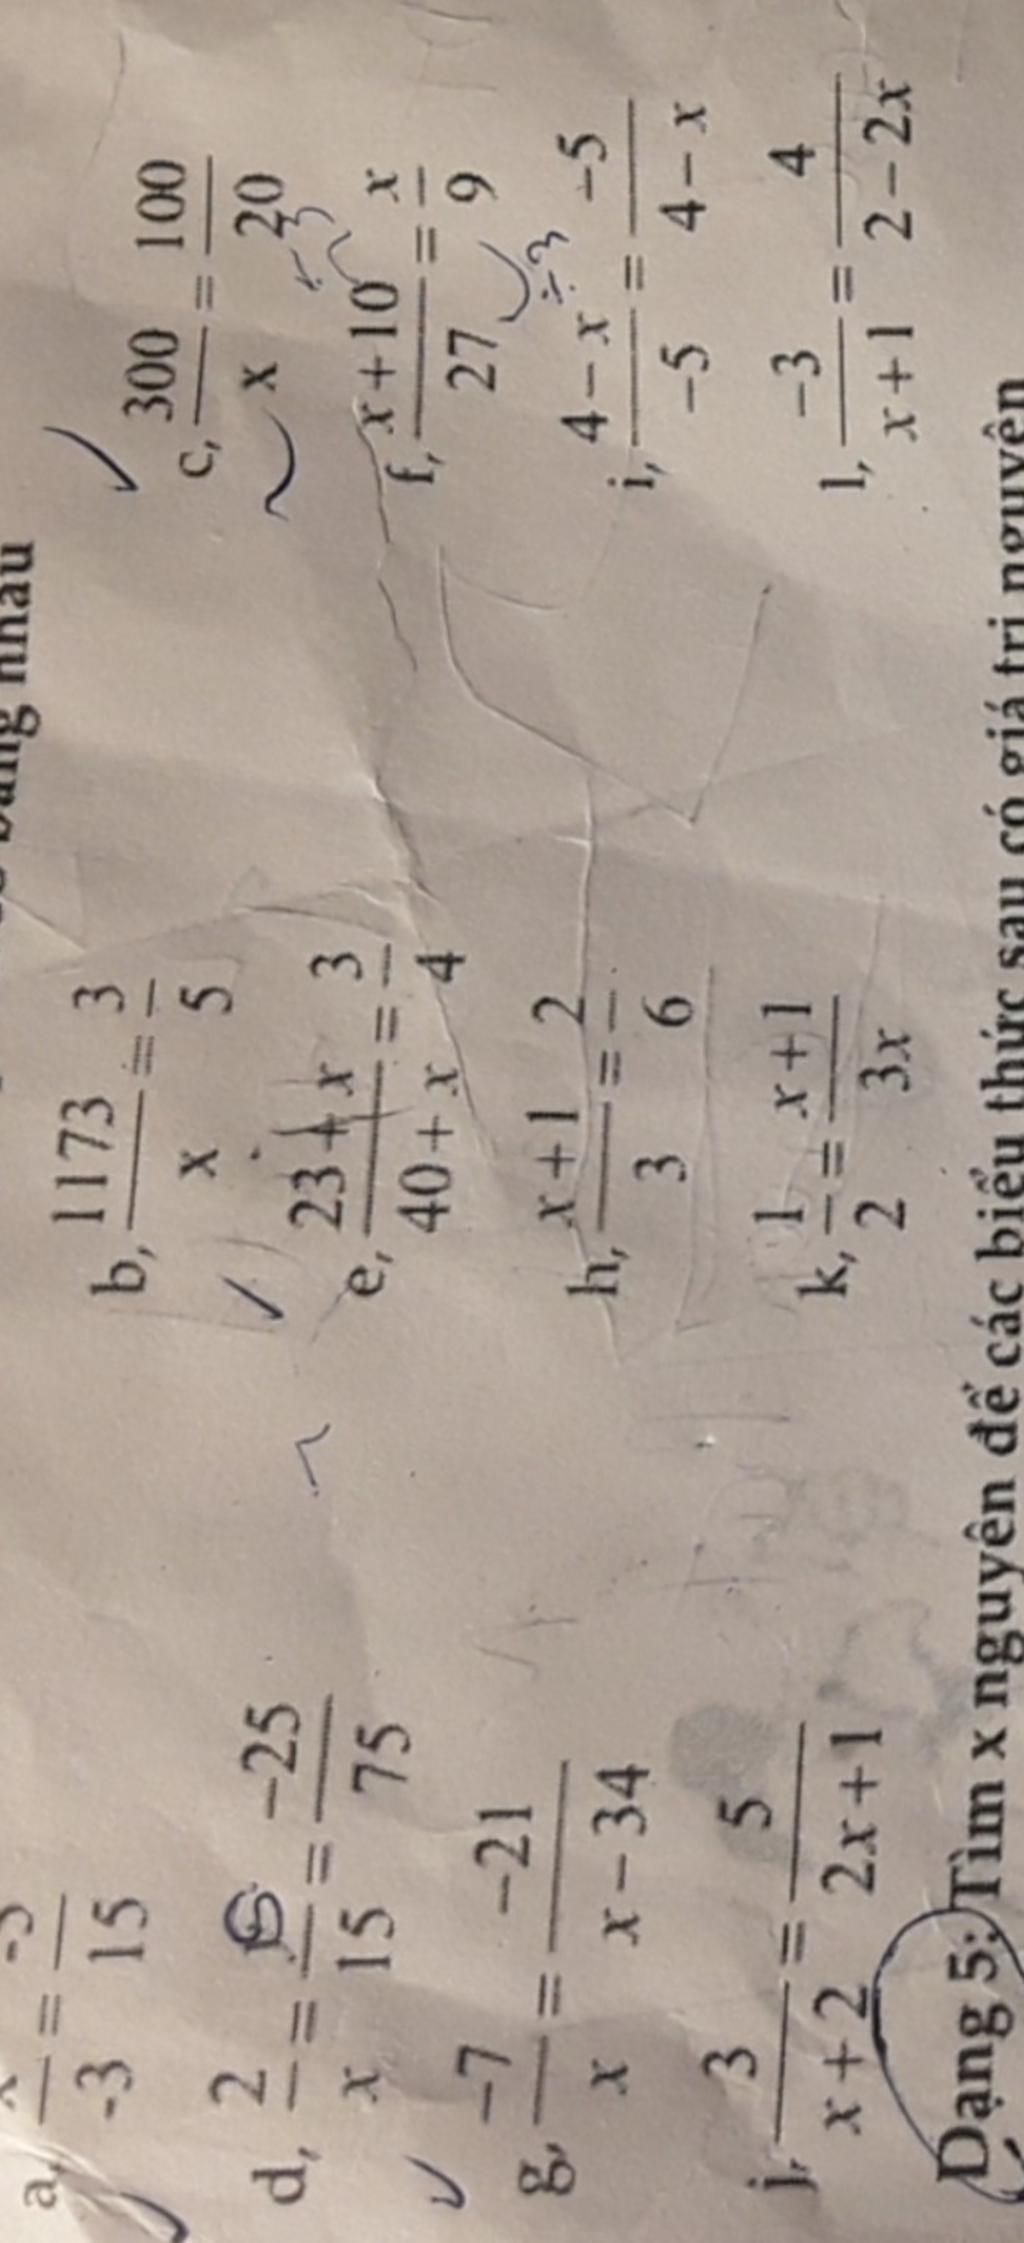 bằng nhau
a, x/-3 = -5/15
b, 1173/x = 3/5
c, 300/x = 100/20
d, 2/x = y/15 = -25/75
e, 23+x/40+x = 3/4
f, x+10/27 = x/9
÷3
g, -7/x = -21/x-34
h, x+1/3 = 2/6
i, 4-x/-5 = -5/4-x
j, 3/x+2 = 5/2x+1
k, 1/2 = x+1/3x
l, -3/x+1 = 4/2-2x
Dạng 5: Tìm x nguyên để các biểu thức sau có giá trị nguyên